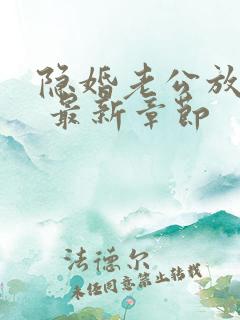 隐婚老公放
最新章节
法德尔
未经同意禁止转载